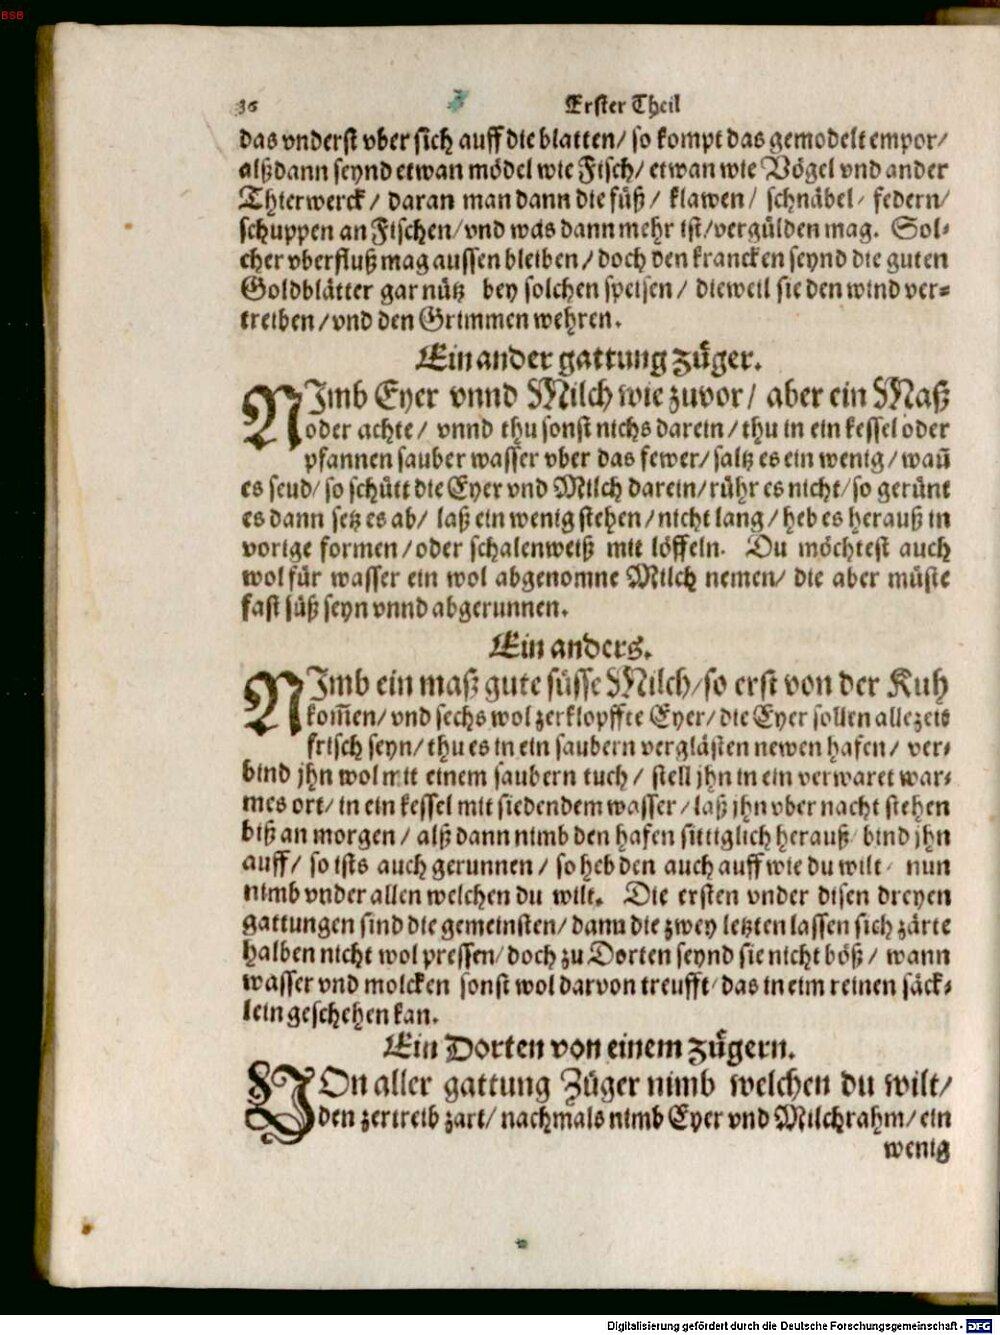 BSB
36 Erster Theil
das vnderst vber sich auff die blatten/ so kompt das gemodelt empor/
alßdann seynd etwan mödel wie Fisch/ etwan wie Vögel vnd ander
Thierwerck/ daran man dann die füß/ klawen/ schnäbel/ federn/
schuppen an Fischen/ vnd was dann mehr ist/ vergülden mag. Sol-
cher vberfluß mag aussen bleiben/ doch den krancken seynd die guten
Goldblätter gar nütz bey solchen speisen/ dieweil sie den wind ver-
treiben/ vnd den Grimmen wehren.
Ein ander gattung züger.
NImb Eyer vnnd Milch wie zuvor/ aber ein Maß
oder achte/ vnnd thu sonst nichs darein/ thu in ein kessel oder
pfannen sauber wasser vber das fewer/ saltz es ein wenig/ wañ
es seud/ so schütt die Eyer vnd Milch darein/ rühr es nicht/ so gerünt
es dann setz es ab/ laß ein wenig stehen/ nicht lang/ heb es herauß in
vorige formen/ oder schalenweiß mit löffeln. Du möchtest auch
wol für wasser ein wol abgenomne Milch nemen/ die aber müste
fast süß seyn vnnd abgerunnen.
Ein anders.
NImb ein maß gute süsse Milch/ so erst von der Kuh
kom̃en/ vnd sechs wol zerklopffte Eyer/ die Eyer sollen allezeit
frisch seyn/ thu es in ein saubern verglästen newen hafen/ ver-
bind jhn wol mit einem saubern tuch/ stell jhn in ein verwaret war-
mes ort/ in ein kessel mit siedendem wasser/ laß jhn vber nacht stehen
biß an morgen/ alß dann nimb den hafen sittiglich herauß/ bind jhn
auff/ so ists auch gerunnen/ so heb den auch auff wie du wilt/ nun
nimb vnder allen welchen du wilt. Die ersten vnder disen dreyen
gattungen sind die gemeinsten/ dann die zwey letzten lassen sich zärte
halben nicht wol pressen/ doch zu Dorten seynd sie nicht böß/ wann
wasser vnd molcken sonst wol darvon treufft/ das in eim reinen säck-
lein geschehen kan.
Ein Dorten von einem zügern.
VOn aller gattung Züger nimb welchen du wilt/
den zertreib zart/ nachmals nimb Eyer vnd Milchrahm/ ein
wenig
Digitalisierung gefördert durch die Deutsche Forschungsgemeinschaft - DFG